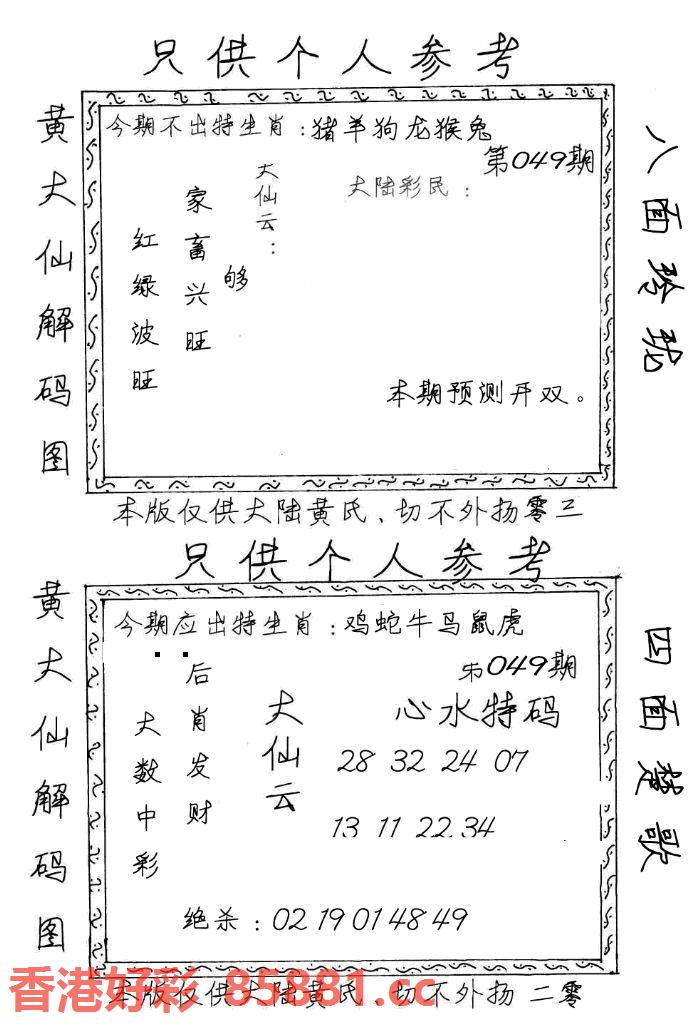 只供个人参考
黄大仙解码图
今期不出特生肖：猪羊狗龙猴兔
第049期
大陆彩民：
大仙云：
够
家畜兴旺
红绿波旺
本期预测开双。
八面玲珑
本版仅供大陆黄氏、切不外扬零三
只供个人参考
黄大仙解码图
今期应出特生肖：鸡蛇牛马鼠虎
第049期
心水特码
大仙云
后肖发财
大数中彩
28 32 24 07
13 11 22.34
绝杀：02 19 01 48 49
四面楚歌
本版仅供大陆黄氏、切不外扬二零
香港好彩 85881.cc